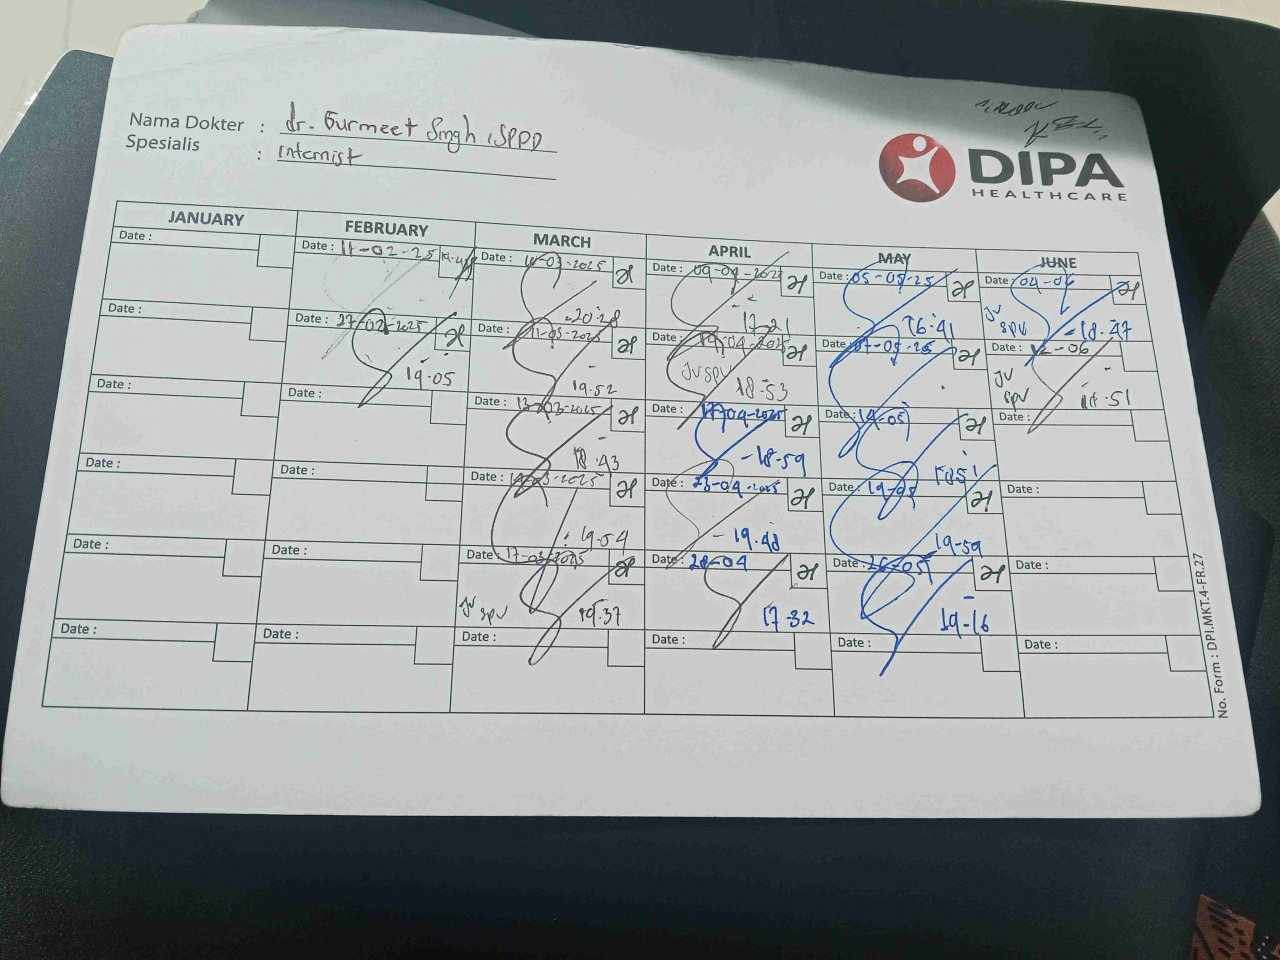 Nama Dokter : dr. Gurmeet Singh, SPPD
Spesialis : Internist
DIPA
HEALTHCARE
JANUARY FEBRUARY MARCH APRIL MAY JUNE
Date : Date : 11-02-25 Date : 10-03-2025 Date : 09-04-2025 Date : 05-05-25 Date : 04-06
20.28 17-21 16.41 JV SPV 18.47
Date : Date : 27-02-2025 Date : 11-03-2025 Date : 04-2025 Date : 07-05-25 Date : 12-06
19.05 19.52 JV SPV 18.53 JV SPV 51
Date : Date : Date : 13-03-2025 Date : 17-04-2025 Date : 14-05 Date :
18.43 18-59
Date : Date : Date : 03-2025 Date : 23-04-2025 Date : 19-05 Date :
19.04 19.48 19-59
Date : Date : Date : 17-03-2025 Date : 28-04 Date : 26-05 Date :
JV SPV 19.37 17.32 19-16
Date : Date : Date : Date : Date : Date :
No. Form : DPI.MKT.4-FR.27